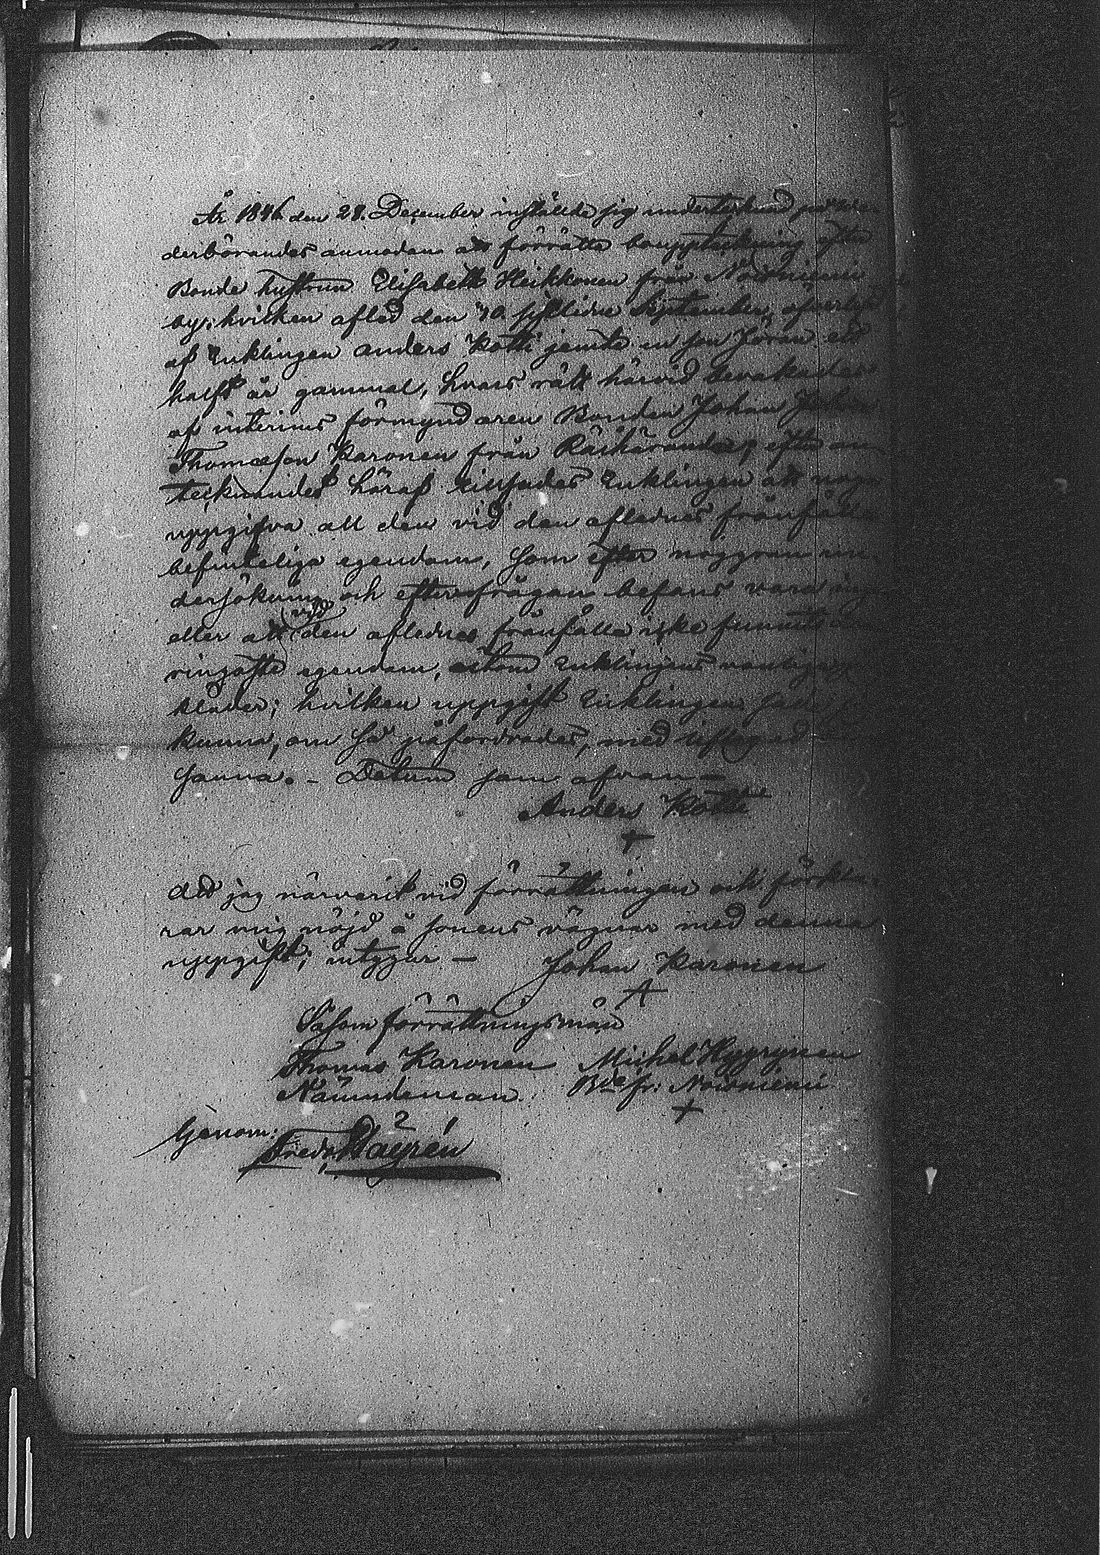 År 1846 den 28. December inställde sig undertecknad på
derbörandes anmodan att förrätta bouppteckning efter
Bonde hustrun Elisabeth Heikkonen från Nowmiemi
by; hvilken afled den 10 sistlidne September, efterlef
af Enklingen Anders Kotti jemte en son Jöran ett
halft år gammal, hvars rätt härvid bevakades
af interims förmyndaren Bonden Johan
Thomasson Karonen från
tecknandet häraf Enklingen att nog
uppgifva all den vid den aflednes frånfälle
befinteliga egendom, som efter noggran un
dersökning och efterfrågan befans vara
eller att vid den aflednes frånfälle icke funnits
ringaste egendom, utom Enklingens
kläder; hvilken uppgift Enklingen sade
kunna, om så påfordrades, med
sanna. - Datum som ofvan -
Anders Kotti
+
Att jag närvarit vid förrättningen och förkla
rar mig nöjd å sonens vägnar med denna
uppgift; intygar - Johan Karonen
A
Såsom förrättningsmän
Thomas Karonen Michel Hyyrynen
Nämndeman. Bde fr: Nowmiemi
+
Genom:
Fredr